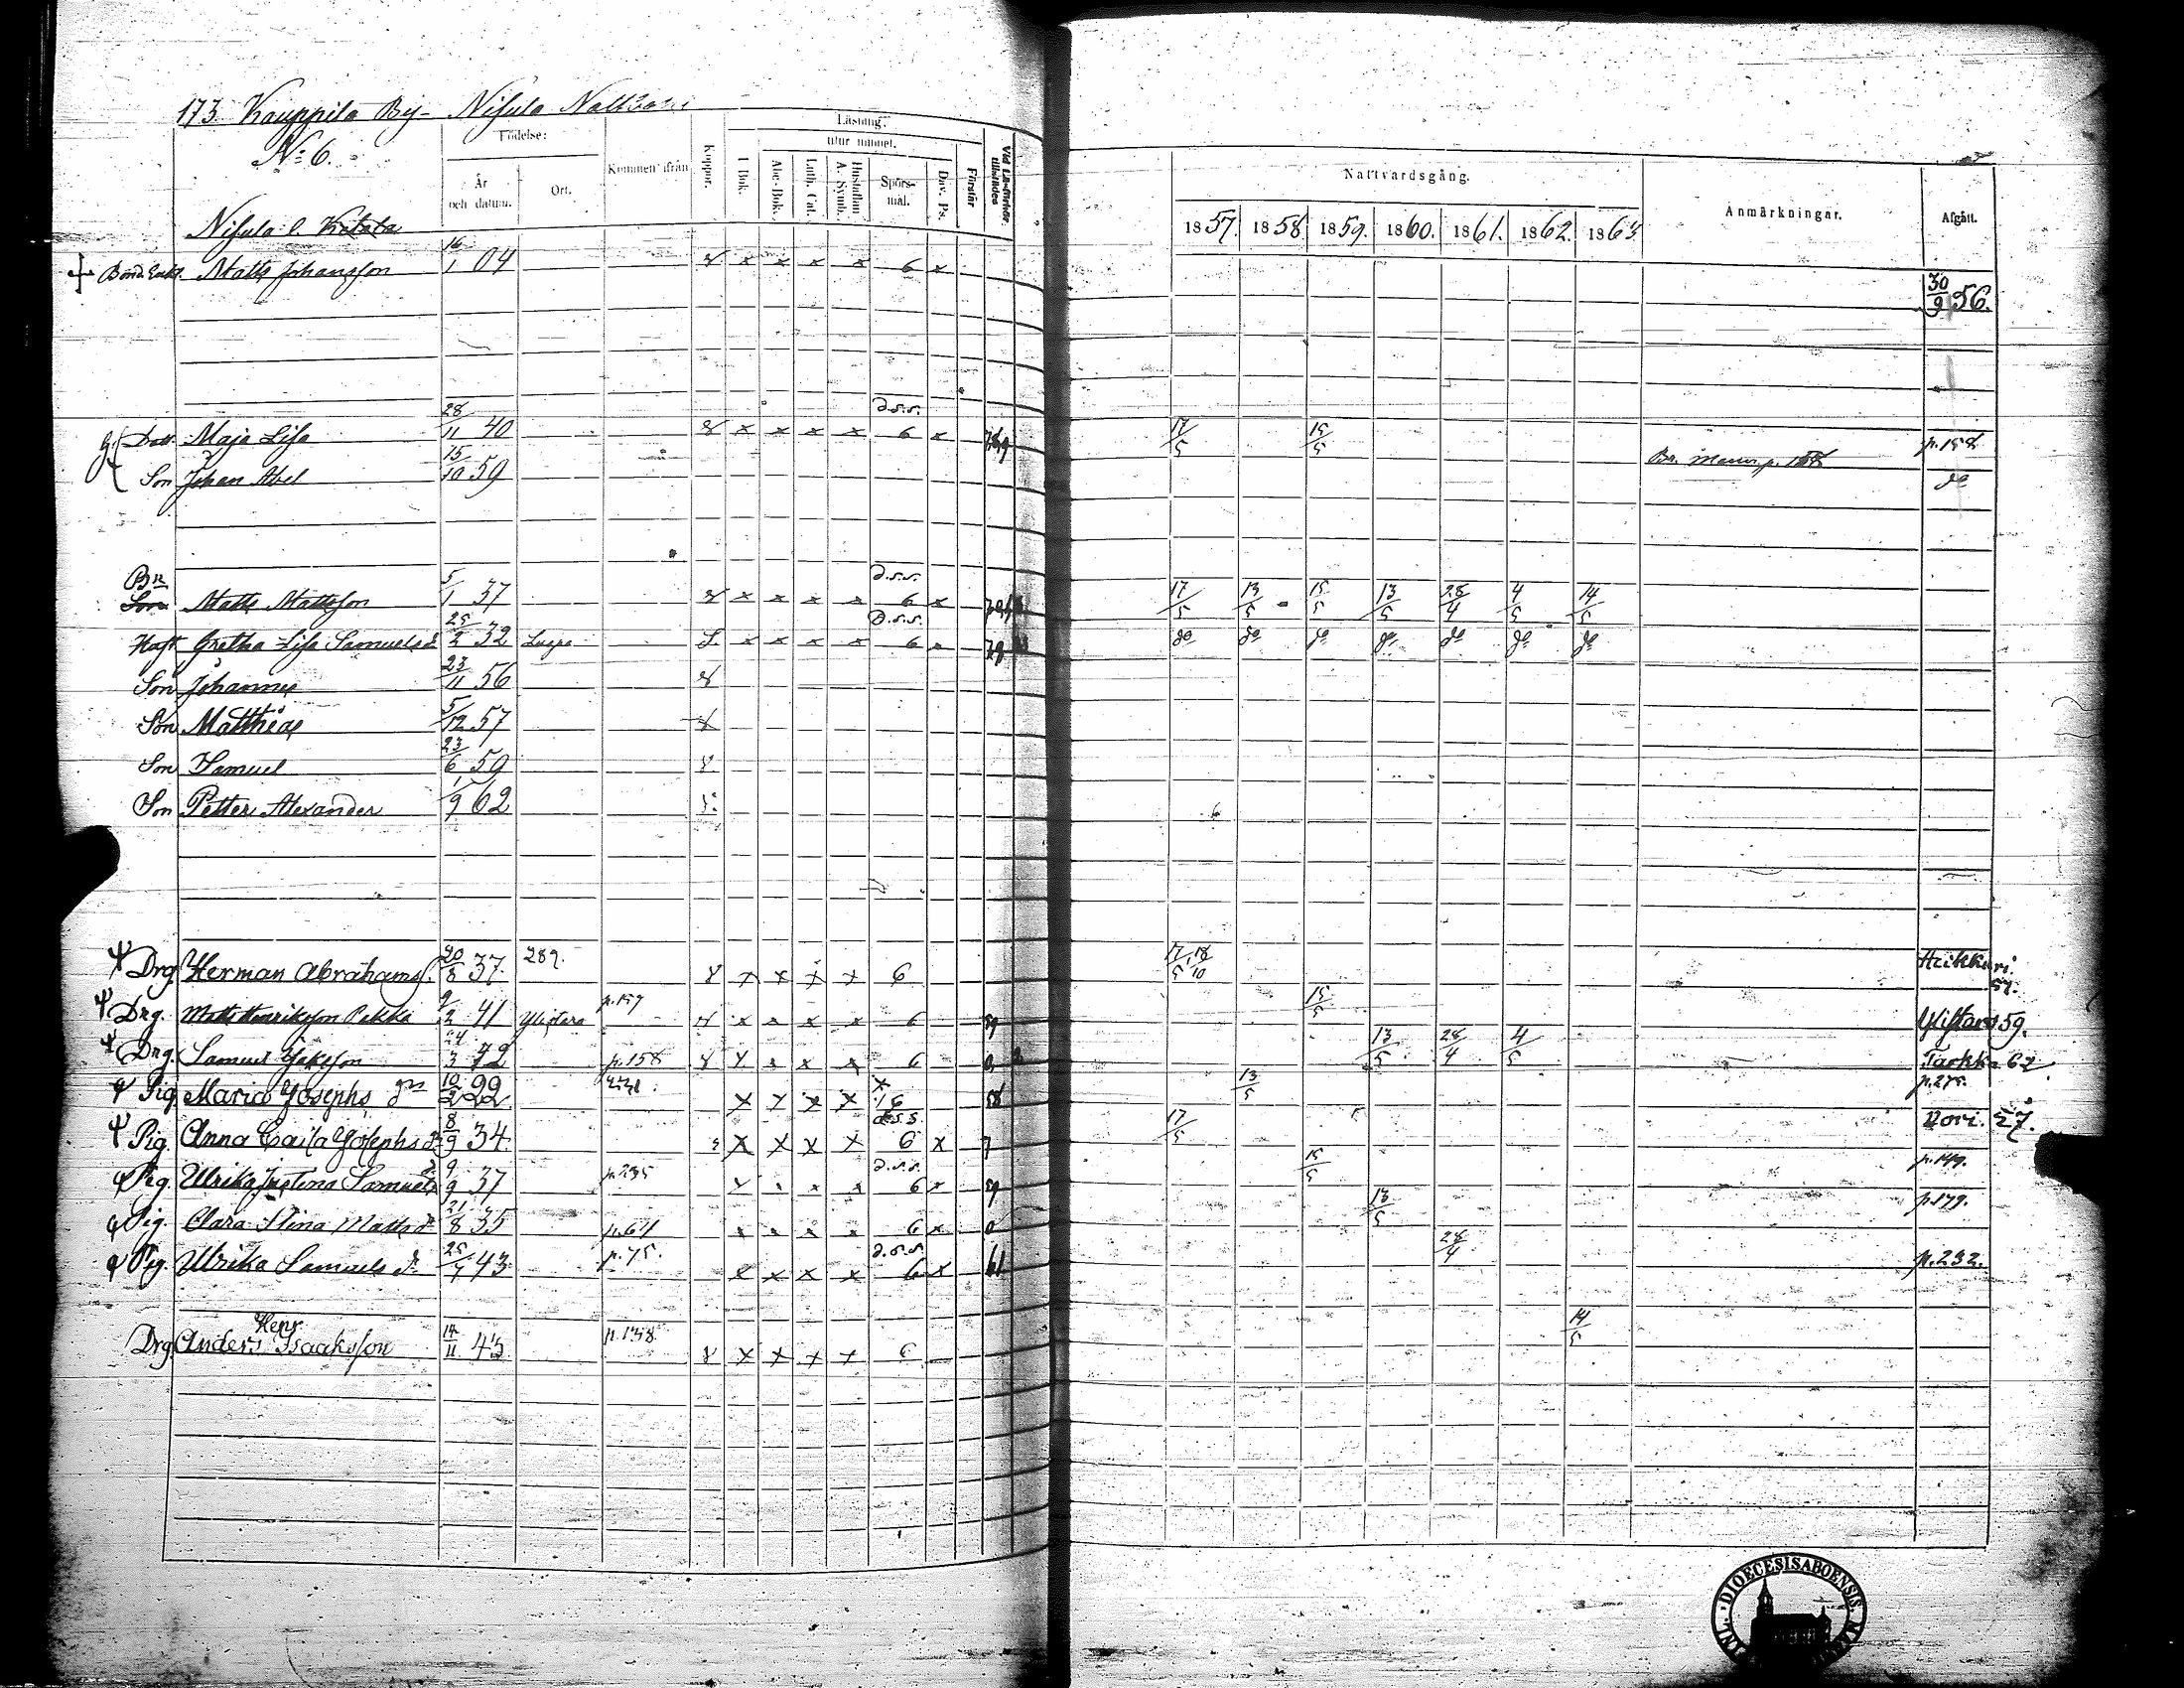 173. Kauppila By - Nisula
No 6.
Födelse:
År och datum.
Ort.
Kommen ifrån
Koppor.
Läsning.
utur minnet.
I Bok.
Abc-Bok.
Luth. Cat.
Hustaflan A. Symb.
Spörs-mål.
Dav. Ps.
Förstår
Nattvardsgång.
1857. 1858 1859. 1860. 1861. 1862. 1863
Anmärkningar.
Afgått.
Nisula l. Ketola
Matts Johansson 16/1 04 x x x x 6 x 30/9 56.
d.s.s.
Dott. Maja Lisa 28/11 40 x x x x 6 x 17/5 15/5 p. 158
Son Johan Abel 15/10 59 p. 158 do
d.s.s.
Bn Son Matts Mattsson 5/1 37 x x x x 6 x 17/5 13/5 15/5 13/5 28/4 4/5 14/5
d.s.s.
Hust. Gretha Lisa Samuels d. 25/2 32 x x x x 6 do do do do do do do
Son Johannes 23/11 56
Son Matthias 5/12 57
Son Samuel 23/6 59
Son Petter Alexander 1/9 62
Drg. Herman Abrahams. 20/8 37. 289. x x x x 6 17/5 18/10 Heikkari 57.
Drg. Matts Henriksson Pekka 9/2 41 Ylistaro p. 157 x x x x 6 59 15/5 Ylistaro 59.
Drg. Samuel 24/3 42 p. 158 x x x x 6 13/5 28/4 4/5 62
Pig. Maria Josephs dr 10/2 22 x x x x 58 13/5 p. 275.
d.s.s.
Pig. Anna Caisa Josephs d. 8/9 34. x x x x 6 x 7 17/5 57.
d.s.s.
Pig. Ulrika Justina Samuels d. 9/9 37 p. 235 x x x x 6 x 59 15/5 p. 149.
Pig. Clara Stina Matts d. 21/8 35 p. 64 x x x x 6 x 0 13/5 p. 179.
d.s.s.
Pig. Ulrika Samuels d. 43 p. 75. x x x x 6 x 61 28/4 p. 232.
Henr.
Drg. Anders Isaksson 14/11 43 p. 158. x x x x 6 14/5
DIOECESIS ABOENSIS